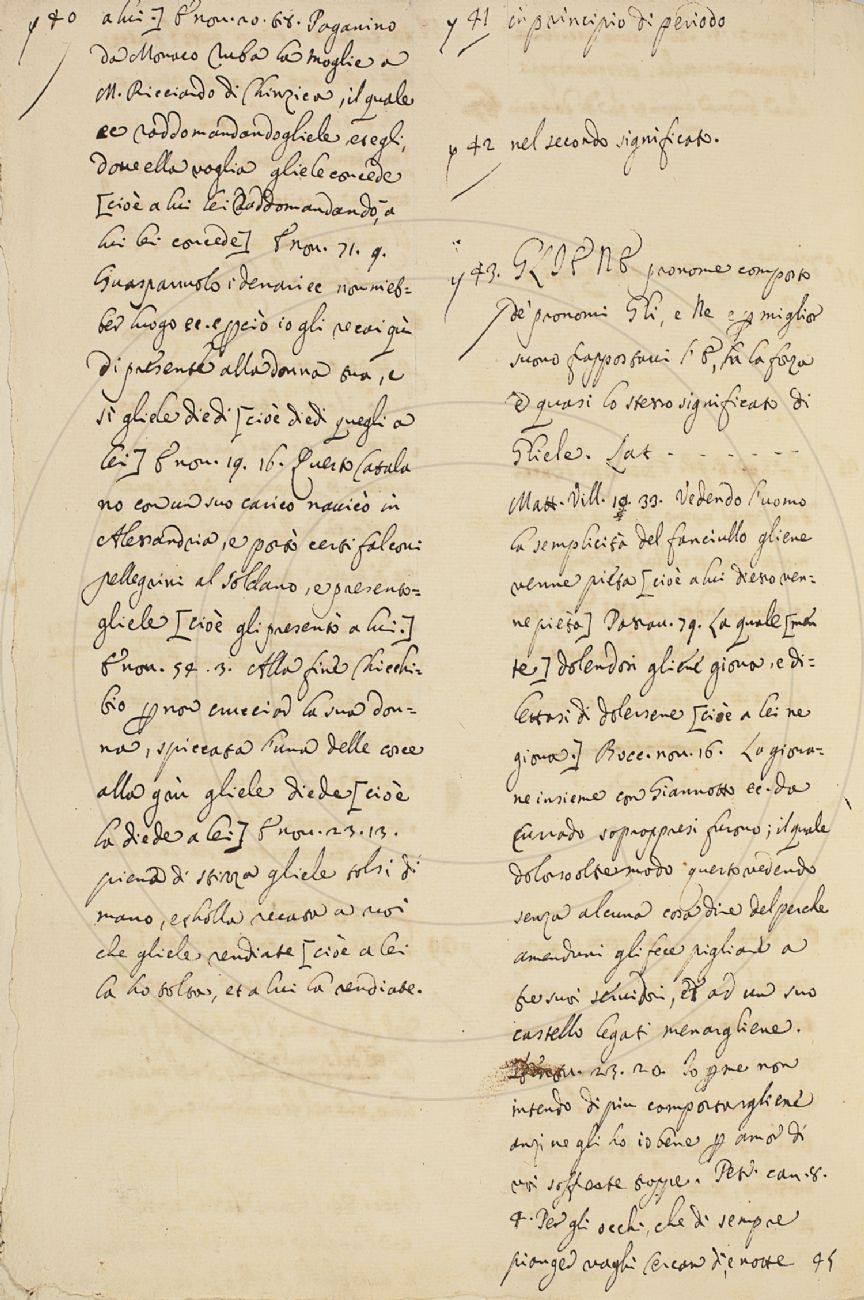 φ 40 a lui.] E nov. 20. 68. Paganino
da Monaco ruba la moglie a
M. Ricciardo di Chinzica, il quale
ec raddomandandogliele, et egli,
dove ella voglia gliele concede
[cioè a lui lei raddomandando, a
lui lei concede] E nov. 71. 9.
Guasparuolo i denari ec non m'eb=
ber luogo ec. e p ciò io gli recai qui
di presente alla donna tua, e
sì gliele diedi [cioè diedi quegli a
lei] E nov. 19. 16. Questo Catala
no con un suo carico navicò in
Alessandria, e portò certi falconi
pellegrini al Soldano, e presento=
gliele [cioè gli presentò a lui.]
E nov. 54. 3. Alla fine Chichi=
bio p non crucciar la sua don=
na, spiccata l'una delle cosce
alla grù gliele diede [cioè
la diede a lei] E nov. 23. 13.
piena di stizza gliele tolsi di
mano, et holla recata a voi
che gliele rendiate [cioè a lei
la ho tolta, et a lui la rendiate.
φ 41 in principio di periodo
φ 42 nel secondo significato.
φ 43. GLIENE pronome composto
de' pronomi Gli, e Ne e p miglior
suono frapportavi l'E, ha la forza
e quasi lo stesso significato di
Gliele. Lat - - - - - -
Matt. Vill. 33. Vedendo l'uomo
la semplicità del fanciullo gliene
venne pietà [cioè a lui di esso ven=
ne pietà] Passav. 79. La quale [men
te] dolendosi gliene giova, e di=
lettasi di dolersene [cioè a lei ne
giova.] Bocc. nov. 16. La giova=
ne insieme con Giannotto ec. da
Currado soprappresi furono; il quale
doloroso oltremodo questo vedendo
senza alcuna cosa dire del perche
amenduni gli fece pigliare a
tre suoi servidori, et ad un suo
castello legati menargliene.
E nov. 23. 20. Io p me non
intendo di piu comportargliene
anzi ne gli ho io bene p amor di
voi sofferte troppe. Petr. can. 8.
4. Per gli occhi, che di sempre
pianger vaghi cercan dì, e notte 45